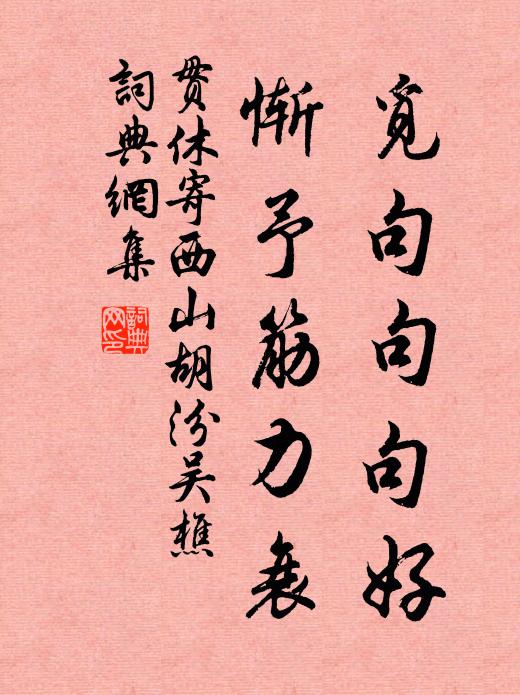 覓句句句好
慚予筋力衰
貫休寄西山胡汾吳樵
詞典網集
詞典网印